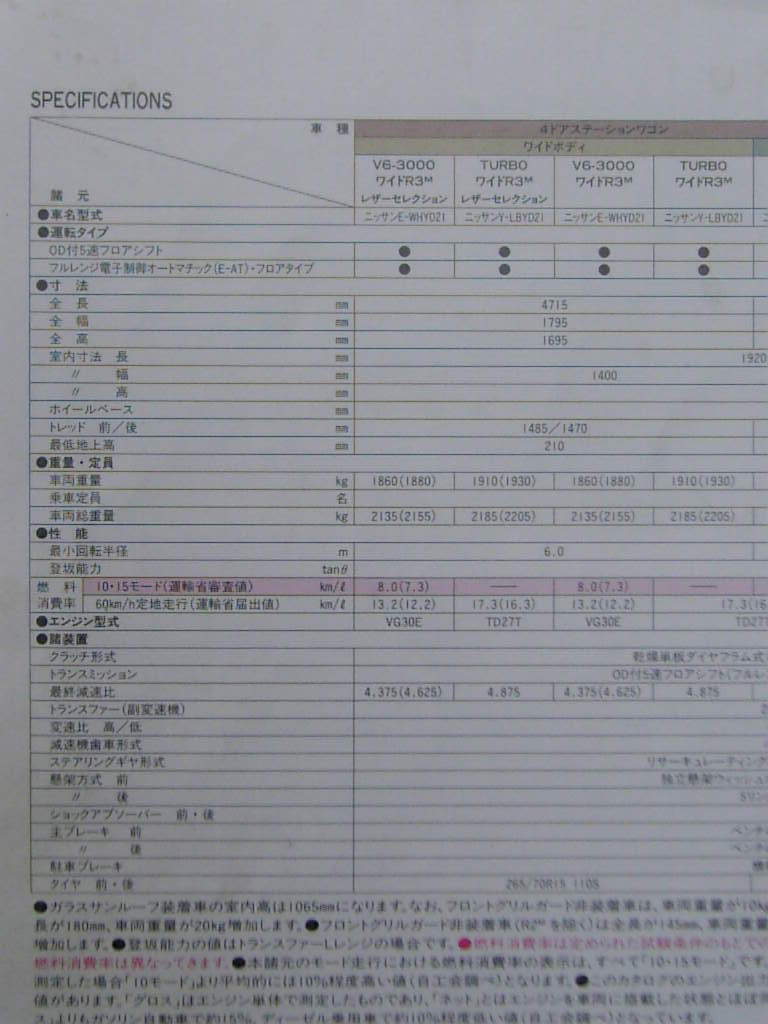 SPECIFICATIONS
車 種
4ドアステーションワゴン
ワイドボディ
諸 元
V6-3000 ワイドR3M レザーセレクション
TURBO ワイドR3M レザーセレクション
V6-3000 ワイドR3M
TURBO ワイドR3M
●車名型式 ニッサンE-WHYD21 ニッサンY-LBYD21 ニッサンE-WHYD21 ニッサンY-LBYD21
●運転タイプ
OD付5速フロアシフト ● ● ● ●
フルレンジ電子制御オートマチック(E-AT)・フロアタイプ ● ● ● ●
●寸 法
全 長 mm 4715
全 幅 mm 1795
全 高 mm 1695
室内寸法 長 mm 1920
〃 幅 mm 1400
〃 高 mm
ホイールベース mm
トレッド 前/後 mm 1485/1470
最低地上高 mm 210
●重量・定員
車両重量 kg 1860(1880) 1910(1930) 1860(1880) 1910(1930)
乗車定員 名
車両総重量 kg 2135(2155) 2185(2205) 2135(2155) 2185(2205)
●性 能
最小回転半径 m 6.0
登坂能力 tanθ
燃 料 10・15モード(運輸省審査値) km/ℓ 8.0(7.3) ── 8.0(7.3) ──
消費率 60km/h定地走行(運輸省届出値) km/ℓ 13.2(12.2) 17.3(16.3) 13.2(12.2) 17.3(16
●エンジン型式 VG30E TD27T VG30E TD27T
●諸装置
クラッチ形式 乾燥単板ダイヤフラム式
トランスミッション OD付5速フロアシフト(フルレン
最終減速比 4.375(4.625) 4.875 4.375(4.625) 4.875
トランスファー(副変速機) 2
変速比 高/低
減速機歯車形式
ステアリングギヤ形式 リサーキュレーティング
懸架方式 前 独立懸架ウィッシュ
〃 後 5リン
ショックアブソーバー 前・後
主ブレーキ 前 ベンチ
〃 後 ベンチ
駐車ブレーキ 機
タイヤ 前・後 265/70R15 110S
●ガラスサンルーフ装着車の室内高は1065mmになります。なお、フロントグリルガード非装着車は、車両重量が10kg
長が180mm、車両重量が20kg増加します。●フロントグリルガード非装着車(R2を除く)は全長が145mm、車両重量
増加します。●登坂能力の値はトランスファーLレンジの場合です。●燃料消費率は定められた試験条件のもとでの
燃料消費率は異なってきます。●本諸元のモード走行における燃料消費率の表示は、すべて「10・15モード」です。
測定した場合「10モード」より平均的には10%程度高い値(自工会調べ)となります。●このカタログのエンジン出力
値があります。「グロス」はエンジン単体で測定したものであり、「ネット」とはエンジンを車両に搭載した状態とほぼ同
ス」よりもガソリン自動車で約15%、ディーゼル乗用車で約10%程度低い値(自工会調べ)となっています。